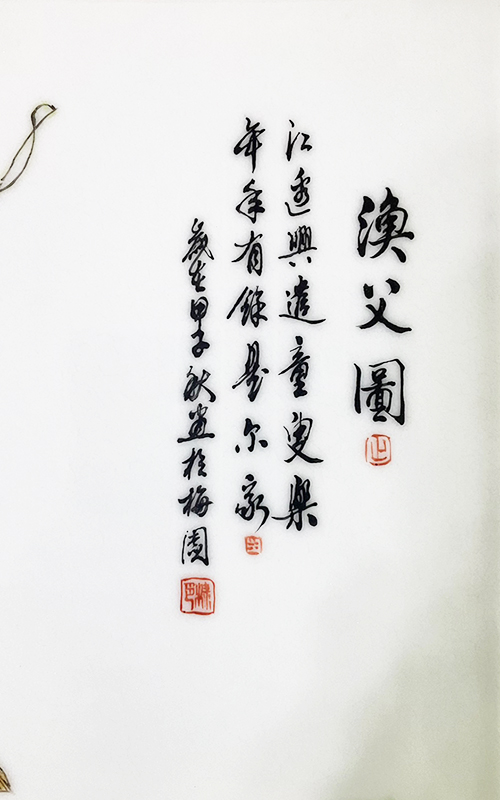 漁父圖
江邊興遣童叟樂
年年有餘是尔家
歲在甲子秋畫於梅園